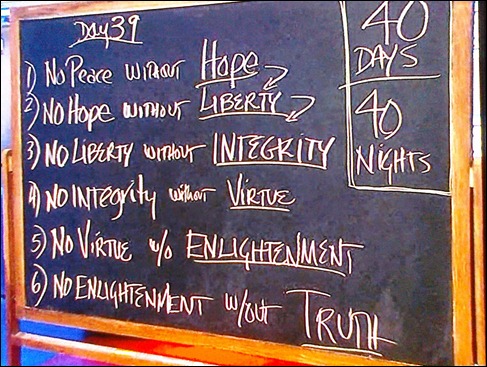 Day 39
1) No Peace without Hope
2) No Hope without Liberty
3) No Liberty without INTEGRITY
4) No Integrity without Virtue
5) No Virtue w/o ENLIGHTENMENT
6) No ENLIGHTENMENT w/out TRUTH
40
DAYS
40
NIGHTS